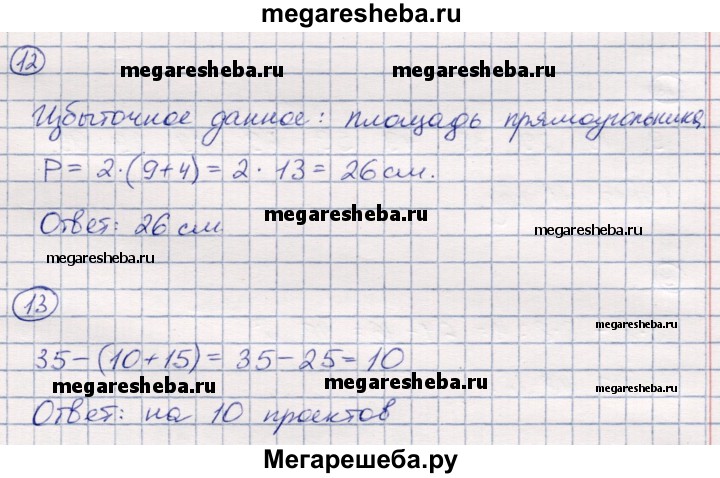 megaresheba.ru
12
megaresheba.ru megaresheba.ru
Избыточное данное: площадь прямоугольника.
P = 2·(9+4) = 2 · 13 = 26 см.
megaresheba.ru
Ответ: 26 см
megaresheba.ru
megaresheba.ru
13
megaresheba.ru
35-(10+15) = 35-25=10
megaresheba.ru megaresheba.ru megaresheba.ru
Ответ: на 10 проектов
Мегарешеба.ру